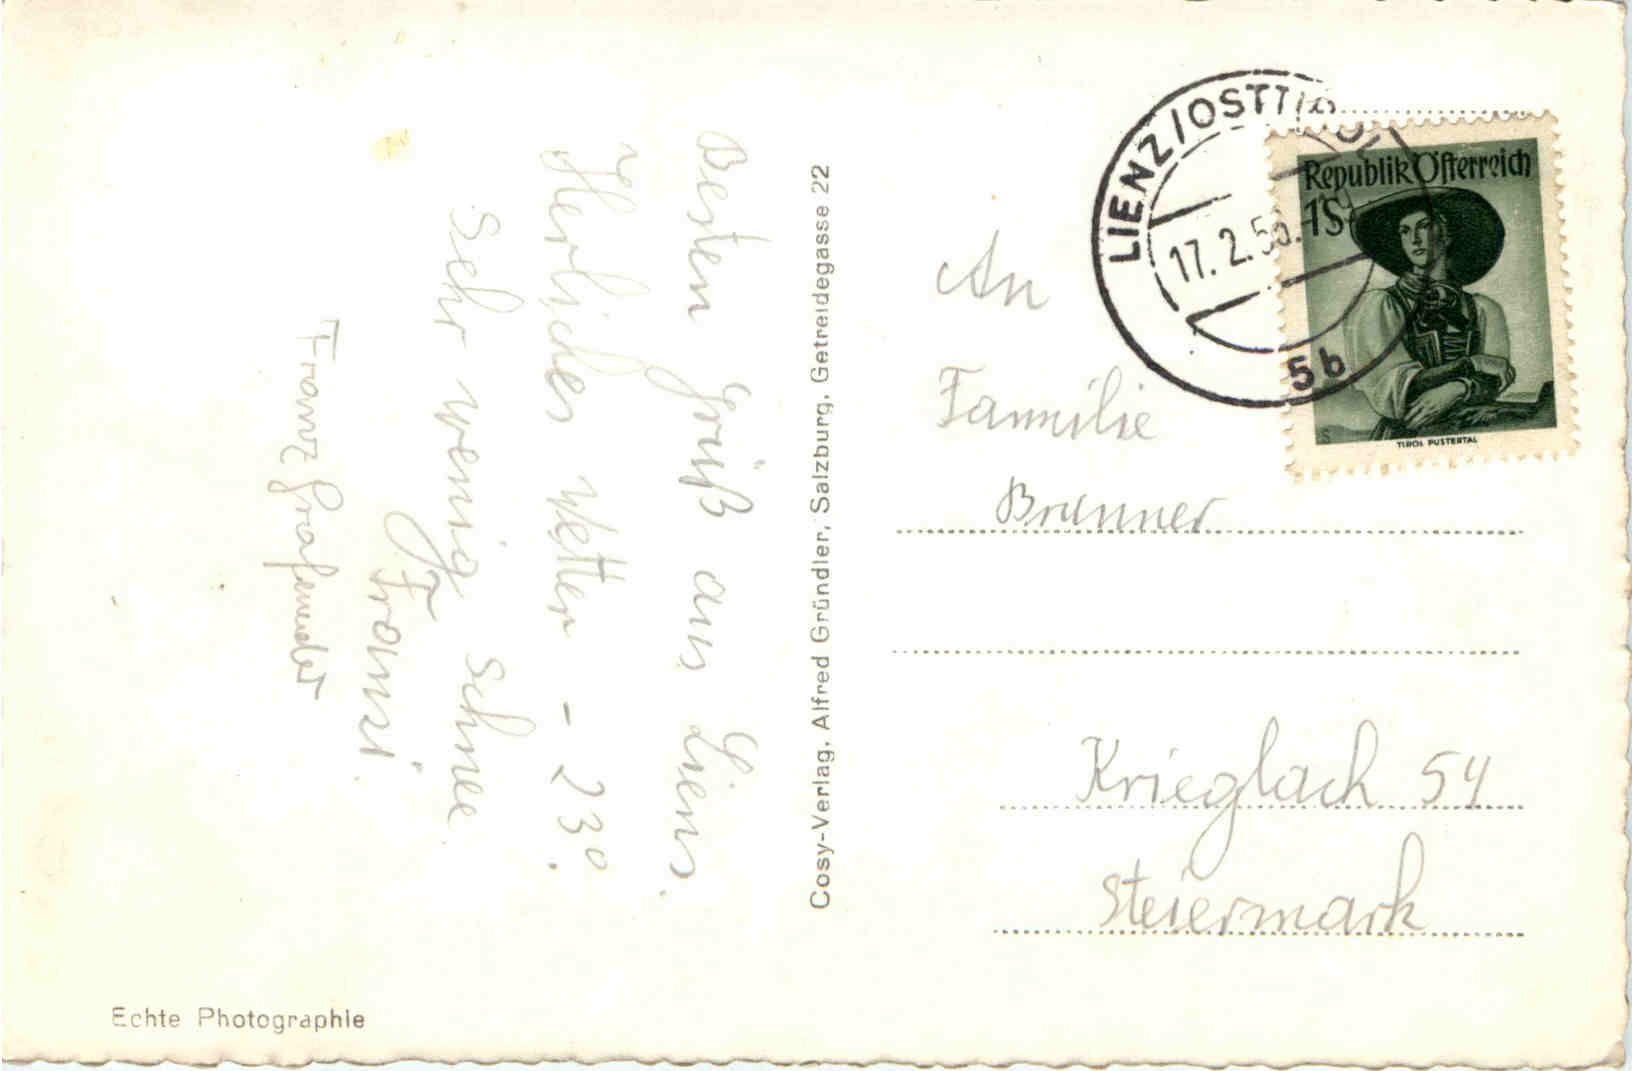 Besten Gruß aus Lienz.
Herrliches Wetter - 23°.
Sehr wenig Schnee
Franzi.
Franz
Cosy-Verlag, Alfred Gründler, Salzburg, Getreidegasse 22
Echte Photographie
LIENZ/OSTTIROL
17. 2. 56.
5b
Republik Österreich
1S
TIROL PUSTERTAL
An
Familie
Brunner
Krieglach 54
Steiermark